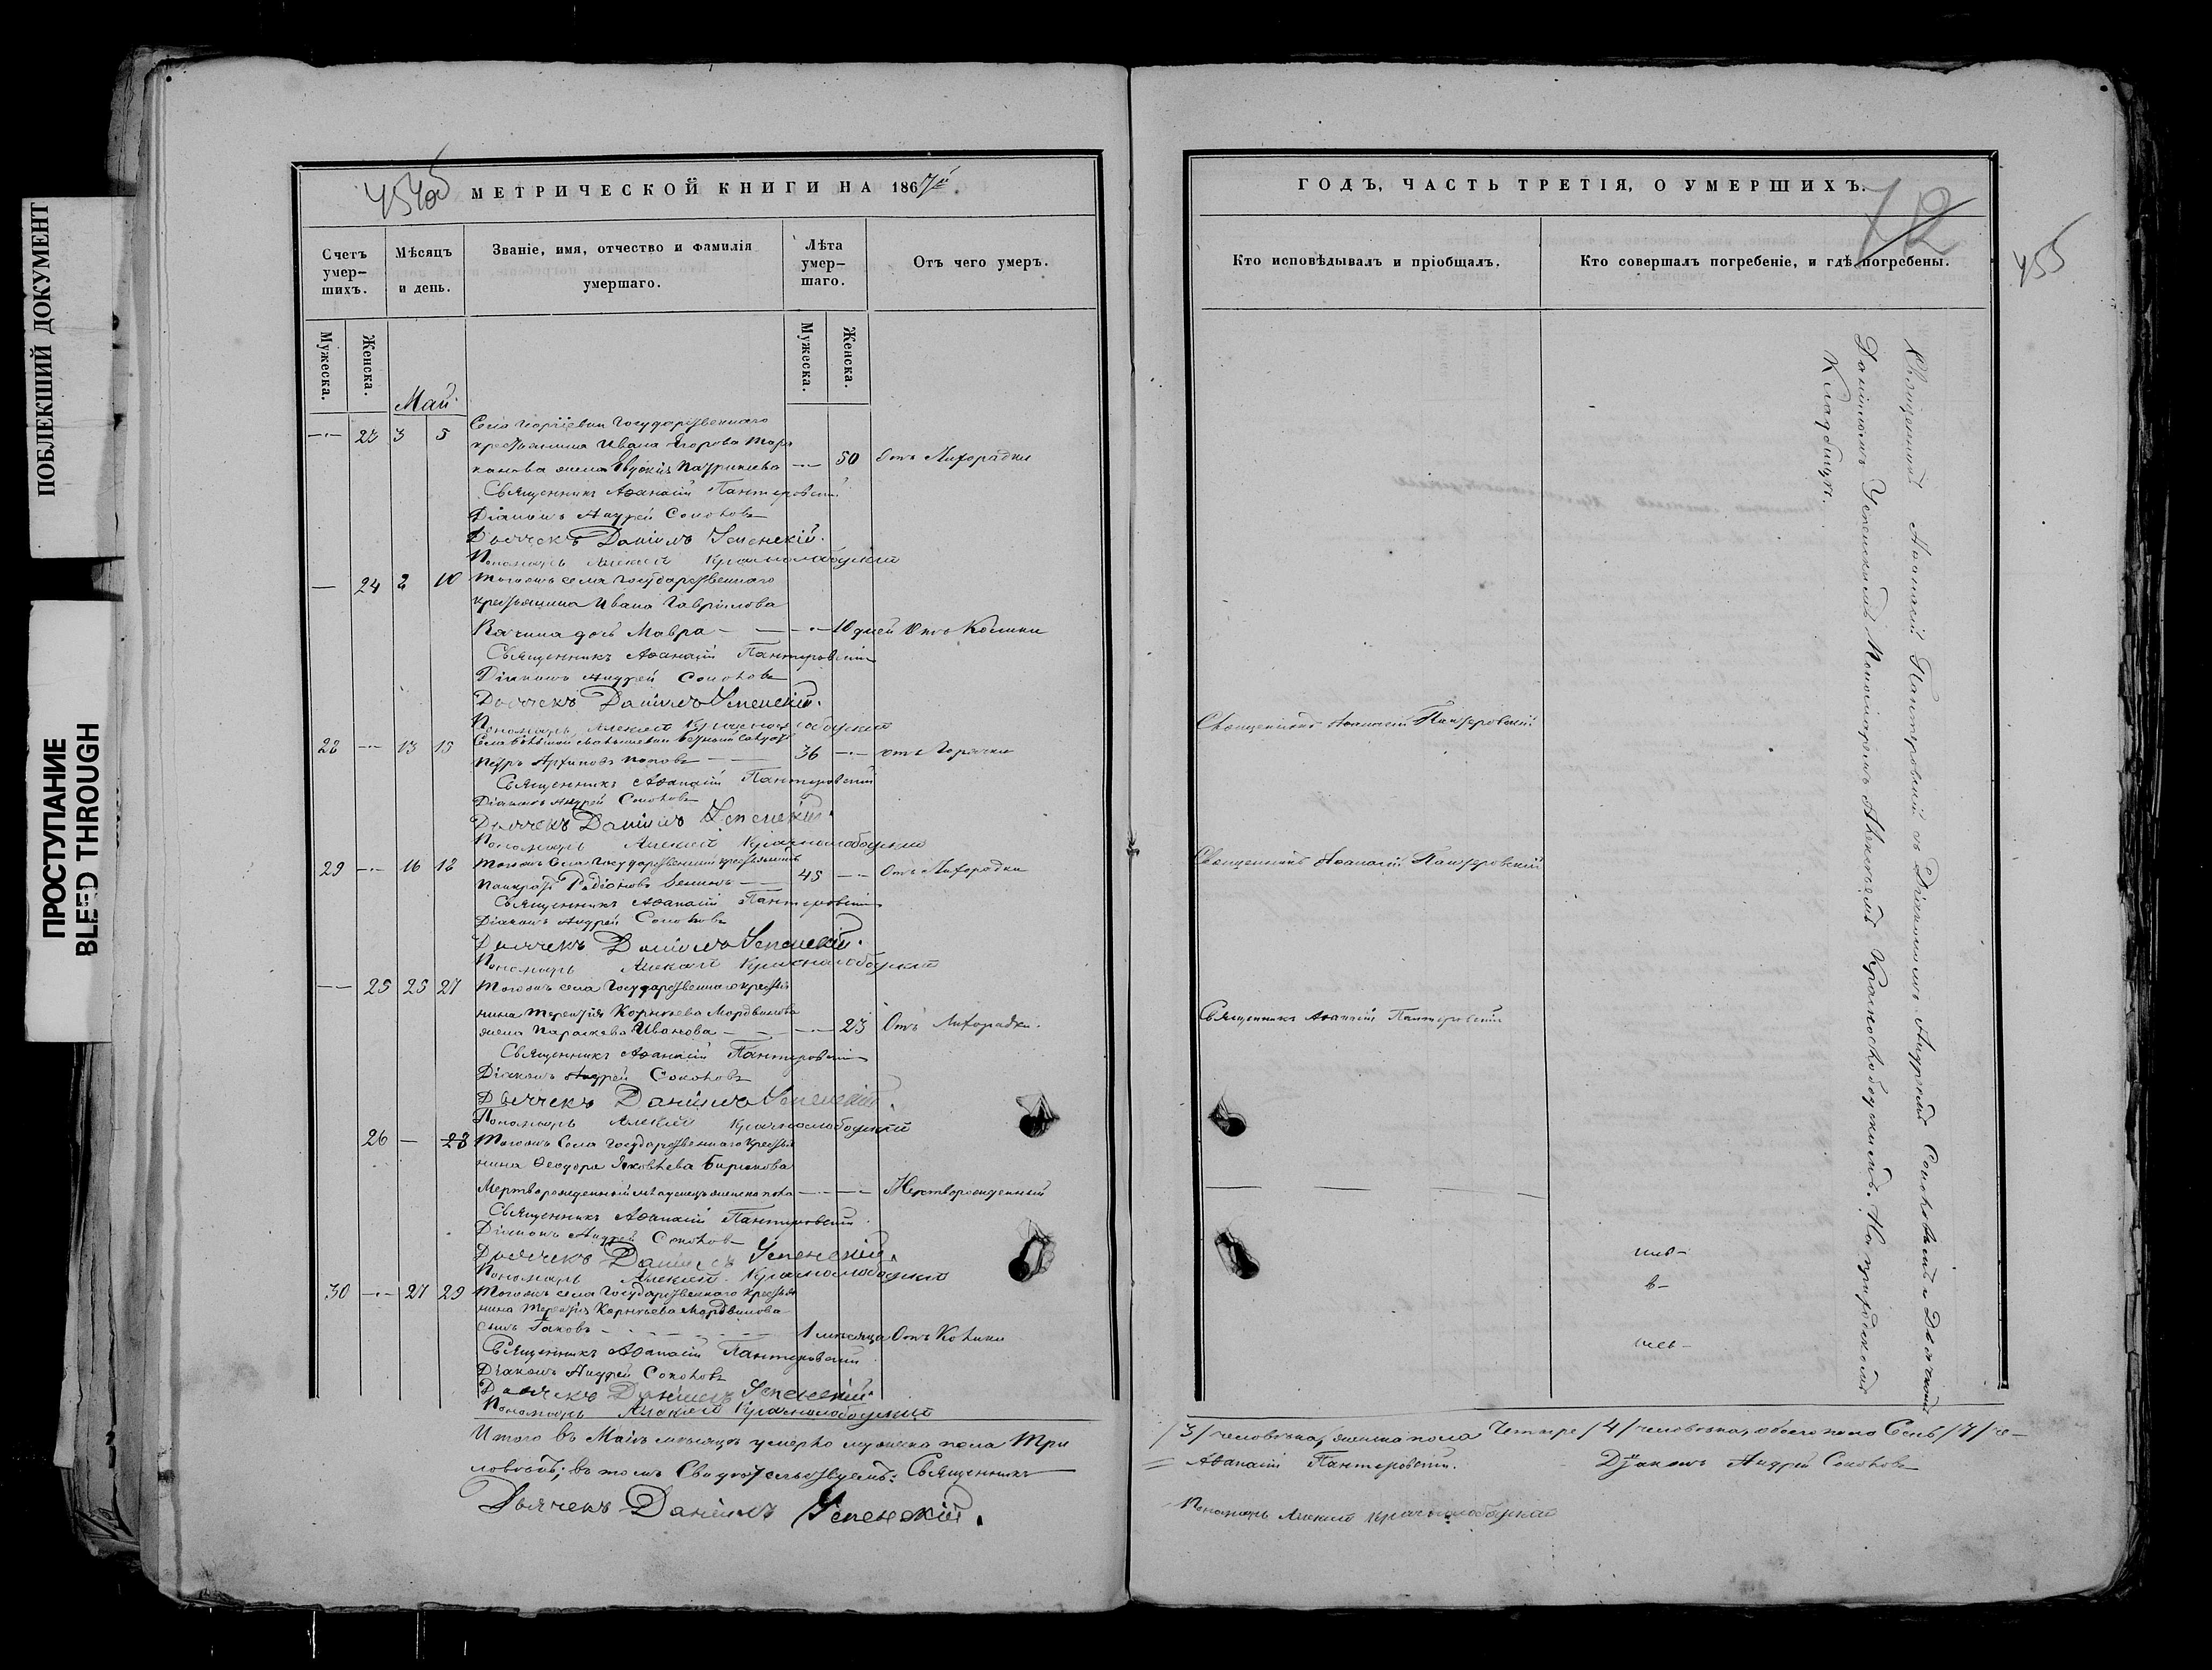 ПОБЛЕКШИЙ ДОКУМЕНТ
ПРОСТУПАНИЕ
BLEED THROUGH
МЕТРИЧЕСКОЙ КНИГИ НА 1867й.
Счетъ умер-шихъ.
Мѣсяцъ и день.
Званіе, имя, отчество и фамилія умершаго.
Лѣта умер-шаго.
Отъ чего умеръ.
Мужеска.
Женска.
Мужеска.
Женска.
Май
23 3 5 Села Государственнаго
крестьянина Ивана Егорова
жена Евдокія 50 отъ Лихорадки
Священникъ Аѳанасій Пантеровскій
Діаконъ Андрей Соколовъ
Дьячекъ Даніилъ Успенскій.
Пономарь Алексѣй Краснослободскій
24 10 Тогожъ села Государственнаго
крестьянина Ивана Гаврилова
дочь Мавра 10 дней
Священникъ Аѳанасій Пантеровскій
Діаконъ Андрей Соколовъ
Дьячекъ Даніилъ Успенскій.
Пономарь Алексѣй Краснослободскій
28 13 15 Села
Петръ Архиповъ Поповъ 36 отъ Горячки
Священникъ Аѳанасій Пантеровскій
Діаконъ Андрей Соколовъ
Дьячекъ Даніилъ Успенскій.
Пономарь Алексѣй Краснослободскій
29 16 18 Тогожъ Села Государственный крестьянинъ
Панкратъ Радіоновъ 45 Отъ Лихорадки
Священникъ Аѳанасій Пантеровскій
Діаконъ Андрей Соколовъ
Дьячекъ Даніилъ Успенскій.
Пономарь Алексѣй Краснослободскій
25 25 27 Тогожъ села Государственнаго крестья
нина Терентія Корнѣева Мордвинова
жена Параскева Иванова 23 Отъ Лихорадки.
Священникъ Аѳанасій Пантеровскій
Діаконъ Андрей Соколовъ
Дьячекъ Даніилъ Успенскій.
Пономарь Алексѣй Краснослободскій
26 — 28 Тогожъ Села Государственнаго Крестья
нина Ѳеодора Яковлева Бирюкова
Мертворожденный младенецъ женска пола Мертворожденный
Священникъ Аѳанасій Пантеровскій
Діаконъ Андрей Соколовъ
Дьячекъ Даніилъ Успенскій.
Пономарь Алексѣй Краснослободскій
30 27 29 Тогожъ села Государственнаго Крестья
нина Терентія Корнѣева Мордвинова
сынъ Іаковъ 1 мѣсяца Отъ Колики
Священникъ Аѳанасій Пантеровскій
Діаконъ Андрей Соколовъ
Дьячекъ Даніилъ Успенскій.
Пономарь Алексѣй Краснослободскій
Итого въ Маѣ мѣсяцѣ умерло мужеска пола Три
ловѣкъ; въ томъ Свидѣтельствуемъ: Священникъ
Дьячекъ Даніилъ Успенскій.
ГОДЪ, ЧАСТЬ ТРЕТІЯ, О УМЕРШИХЪ.
72
455
Кто исповѣдывалъ и пріобщалъ.
Кто совершалъ погребеніе, и гдѣ погребены.
Священникъ Аѳанасій Пантеровскій
Священникъ Аѳанасій Пантеровскій
Священникъ Аѳанасій Пантеровскій
Священникъ Аѳанасій Пантеровскій съ Діакономъ Андреемъ Соколовымъ и Дьячкомъ
Даніиломъ Успенскимъ Пономаремъ Алексѣемъ Краснослободскимъ. На приходскомъ
Кладбищѣ.
/3/ человѣка, женска пола Четыре /4/ человѣка, обоего пола Семь /7/ че-
Аѳанасій Пантеровскій. Діаконъ Андрей Соколовъ
Пономарь Алексѣй Краснослободскій